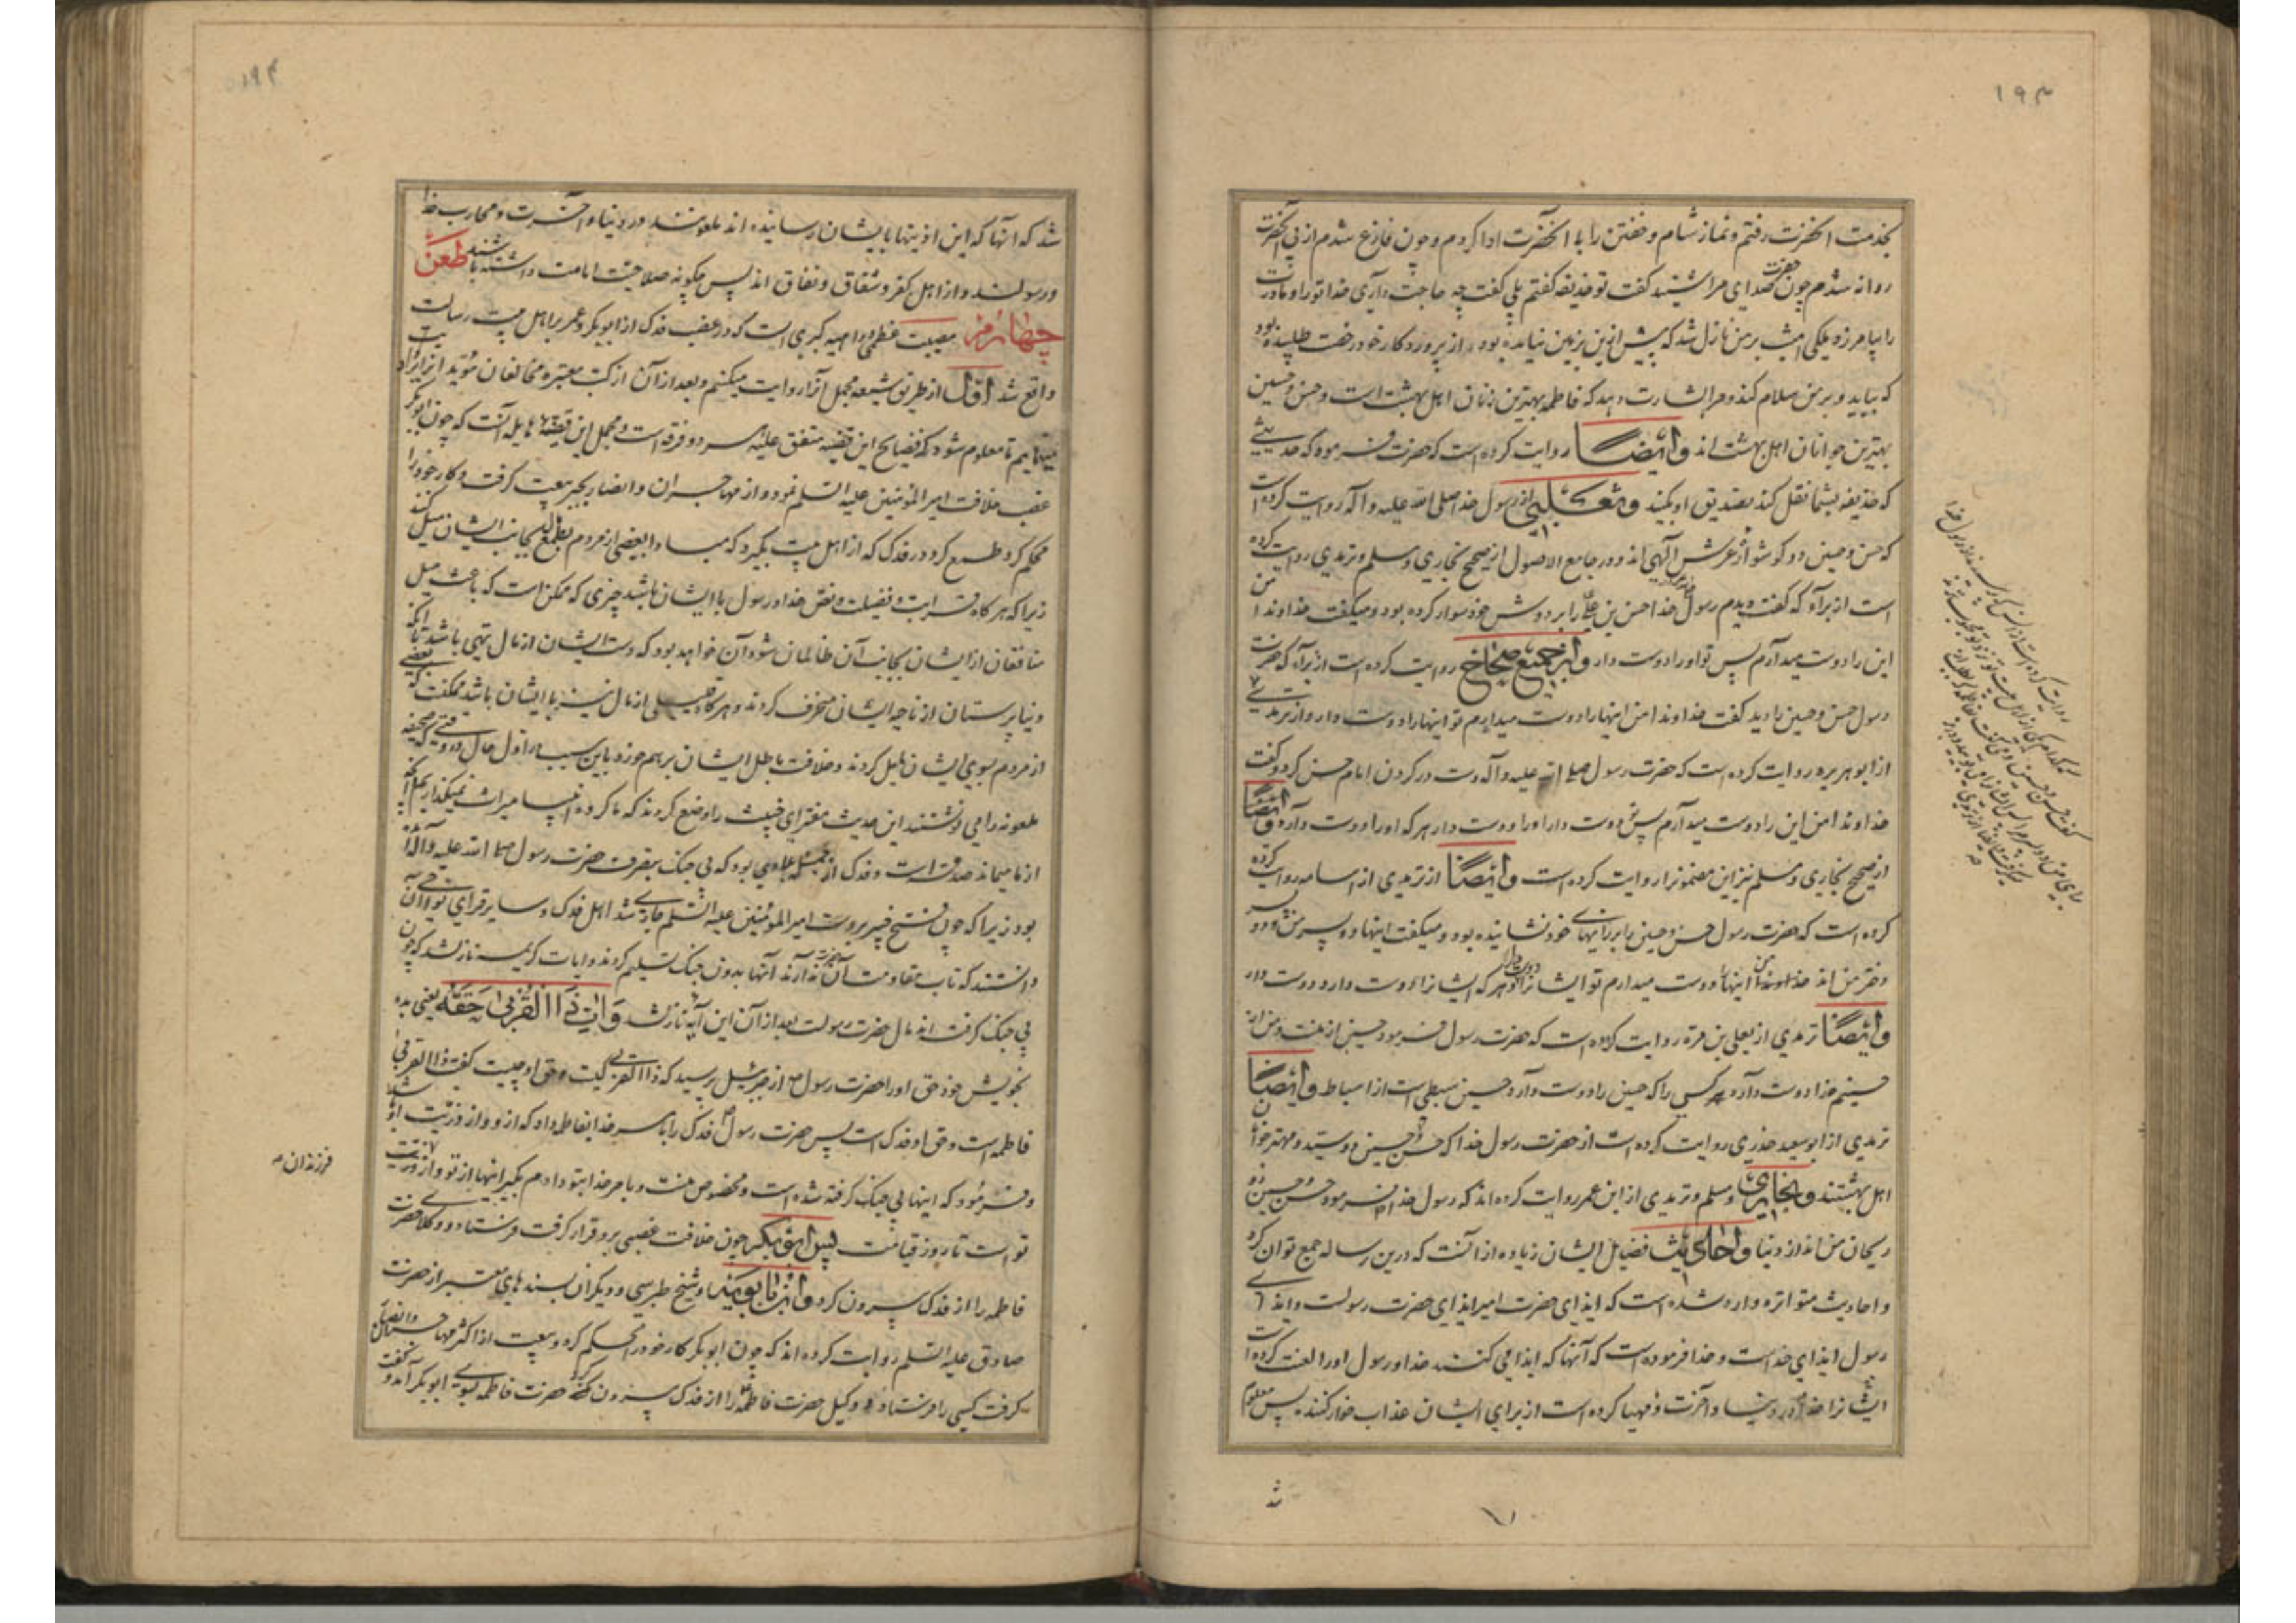 ۱۹۳
بخدمت آنحضرت رفتم و نماز شام و خفتن را با آنحضرت ادا کردم و چون فارغ شدم از پی آنحضرت
روانه شدم چون حضرت صدای مرا شنید گفت تو حذیفه گفتم بلی گفت چه حاجت داری خدا تو را و مادرت
را بیامرزد ملکی امشب بر من نازل شد که پیش ازین بزمین نیامده بود از پروردکار خود رخصت طلبیده بود
که بیاید و بر من سلام کند و مرا بشارت دهد که فاطمه بهترین زنان اهل بهشت است و حسن و حسین
بهترین جوانان اهل بهشت اند وایضا روایت کرده است که حضرت فرمود که حدیثی
که حذیفه بشما نقل کند تصدیق او بکنید وثعلبی از رسول خدا صلی الله علیه و آله روایت کرده است
که حسن و حسین دو کوشواره عرش الهی اند و در جامع الاصول از صحیح بخاری و مسلم و ترمذی روایت کرده
است از براء که گفت دیدم رسول خدا حسن بن علی را بر دوش خود سوار کرده بود و میکفت خداوندا من
این را دوست میدارم پس تو او را دوست دار واز جمیع صحاح روایت کرده است از براء که حضرت
رسول حسن و حسین را دید گفت خداوندا من اینها را دوست میدارم تو اینها را دوست دار و از ترمذی
از ابوهریره روایت کرده است که حضرت رسول صلی الله علیه و آله دست در کردن امام حسن کرد و گفت
خداوندا من این را دوست میدارم پس تو دوست دار او را و دوست دار هر که او را دوست دارد وایضا
از صحیح بخاری و مسلم نیز این مضمون را روایت کرده است وایضا از ترمذی از اسامه روایت کرده
کرده است که حضرت رسول حسن و حسین را بر رانهای خود نشانیده بود و میکفت اینها دو پسر من و دو پسر
دختر من اند خداوندا من اینها را دوست میدارم تو ایشانرا دوست دار و هر که ایشانرا دوست دارد دوست دار
وایضا ترمذی از یعلی بن مره روایت کرده است که حضرت رسول فرمود حسین از منست و من از
حسینم خدا دوست دارد هر کسی را که حسین را دوست دارد حسین سبطی است از اسباط وایضا
ترمذی از ابوسعید خدری روایت کرده است از حضرت رسول خدا که حسن و حسین دو سید و مهتر جوانان
اهل بهشتند وبخاری و مسلم و ترمذی از ابن عمر روایت کرده اند که رسول خدا فرمود حسن و حسین دو
ریحان من اند از دنیا واحادیث فضایل ایشان زیاده از آنست که درین رساله جمع توان کرد
و احادیث متواتره وارد شده است که ایذای حضرت امیر ایذای حضرت رسولست و ایذای
رسول ایذای خداست و خدا فرموده است که آنها که ایذا می کنند خدا و رسول او را لعنت کرده است
ایشانرا خدا در دنیا و آخرت و مهیا کرده است از برای ایشان عذاب خوار کننده پس معلوم
شد
۱۹۴
شد که آنها که این اذیتها بایشان رسانیده اند ملعونند در دنیا و آخرت و محارب خدا
و رسولند و از اهل کفر و شقاق و نفاق اند پس چکونه صلاحیت امامت داشته باشند طعن
چهارم مصیبت عظمی و داهیه کبری است که در غصب فدک از ابوبکر و عمر بر اهل بیت رسالت
واقع شد اول از طریق شیعه مجمل آنرا روایت میکنم و بعد از آن از کتب معتبره مخالفان مؤید آنرا ایراد
مینمایم تا معلوم شود که فضایح این قضیه متفق علیه هر دو فرقه است و مجمل این قصه هایله آنست که چون ابوبکر
غصب خلافت امیرالمؤمنین علیه السلم نمود و از مهاجران و انصار بجبر بیعت کرفت و کار خود را
محکم کرد طمع کرد در فدک که از اهل بیت بگیرد که مبادا بعضی از مردم بطمع مال بجانب ایشان میل کنند
زیرا که هرکاه قرابت و فضیلت و نص خدا و رسول با ایشان باشد چیزی که ممکن است که باعث میل
منافقان از ایشان بجانب آن ظالمان شود آن خواهد بود که دست ایشان از مال تهی باشد تا آنکه
دنیاپرستان از ناحیه ایشان منحرف کردند و هرکاه قلیلی از مال نیز با ایشان باشد ممکنست که بعضی
از مردم بسوی ایشان مایل کردند و خلافت باطل ایشان برهم خورد باین سبب در اول حال در وقتی که صحیفه
ملعونه را می نوشتند این حدیث مفترای خبیث را وضع کردند که ما کروه انبیا میراث نمیگذاریم آنچه
از ما میماند صدقه است و فدک از جمله بلادی بود که بی جنک بتصرف حضرت رسول صلی الله علیه و آله در آمده
بود زیرا که چون فتح خیبر بر دست امیرالمؤمنین علیه السلم جاری شد اهل فدک و سایر قرای نواحی آن
دانستند که تاب مقاومت آن حضرت ندارند آنها بدون جنک تسلیم کردند و آیات کریمه نازل شد که چون
بی جنک کرفته اند مال حضرت رسولست بعد از آن این آیه نازل شد وَآتِ ذَا القُرْبی حَقَّهُ یعنی بده
بخویش خود حق او را حضرت رسول از جبرئیل پرسید که ذا القربی کیست و حق او چیست گفت ذا القربی
فاطمه است و حق او فدک است پس حضرت رسول فدک را بامر خدا بفاطمه داد که از او و از ذریت او باشد
و فرمود که اینها بی جنک کرفته شده است و مخصوص منست و بامر خدا بتو دادم بگیر اینها از تو و از ذریت
فرزندان
تو است تا روز قیامت پس ابوبکر چون خلافت غصبی برو قرار کرفت فرستاد و وکلای حضرت
فاطمه را از فدک بیرون کرد وابن بابویه و شیخ طبرسی و دیگران بسندهای معتبر از حضرت
صادق علیه السلم روایت کرده اند که چون ابوبکر کار خود را محکم کرد و بیعت از اکثر مهاجران و انصار
کرفت کسی را فرستاد و وکیل حضرت فاطمه را از فدک بیرون کرد حضرت فاطمه بسوی ابوبکر آمد و گفت